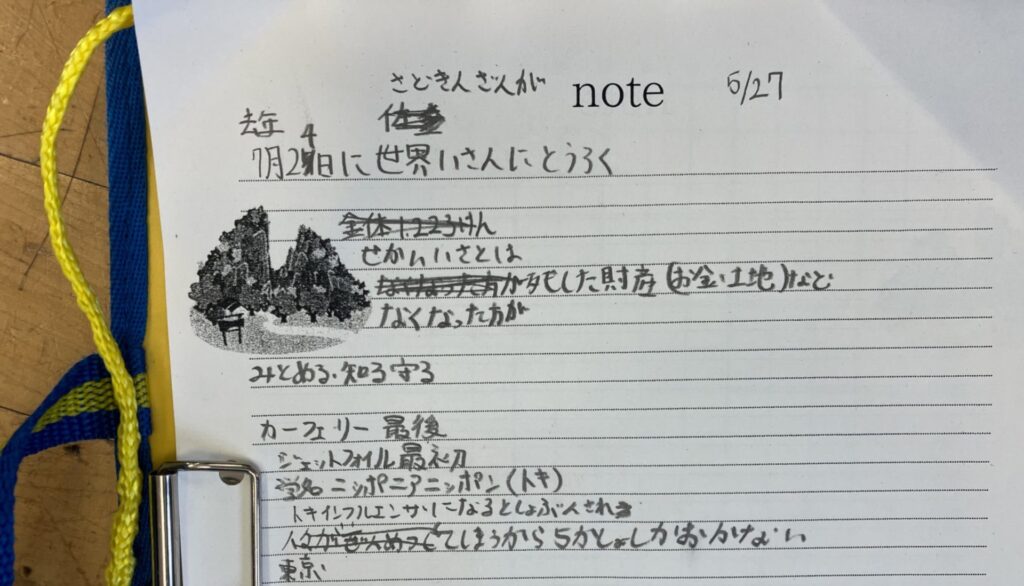 さどきんざんが
note
5/27
去年
7月24日に世界いさんにとうろく
全体1,223けん
せかいいさとは
なくなった方が残した財産(お金、土地)など
なくなった方が
みとめる・知る守る
カーフェリー 最後
ジェットフォイル最初
学名 ニッポニアニッポン(トキ)
トキインフルエンサになるとしょぶんされる
てしまうから5かしょしかおかけない
東京